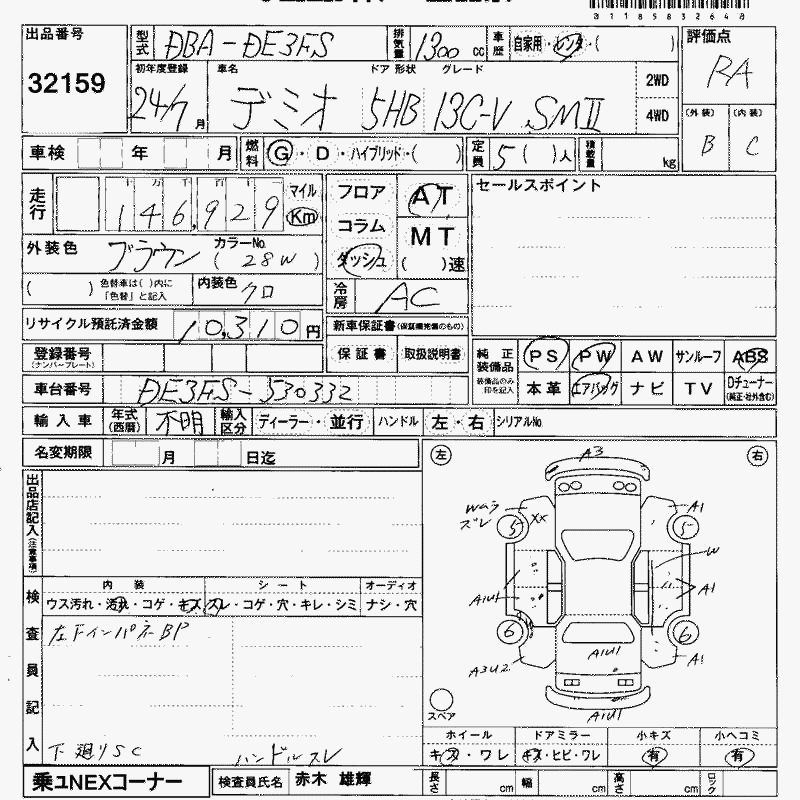 811858326 48
出品番号
32159
型式 DBA-DE3FS
排気量 1300 cc
車歴 自家用・レンタ・( )
評価点
RA
初年度登録 車名 ドア 形状 グレード
24/7月 デミオ 5HB 13C-V SMII
2WD
4WD
(外装) (内装)
B C
車検 年 月
燃料 G・D・ハイブリッド・( )
定員 5( )人
積載量 kg
走行 十 万 千 百 十 マイル
146,929 Km
フロア
コラム
ダッシュ
AT
MT
( )速
セールスポイント
外装色 ブラウン カラーNo. ( 28W )
( ) 色替車は( )内に「色替」と記入
内装色 クロ
冷房 AC
リサイクル預託済金額 10,310円
新車保証書(保証継続論のもの)
登録番号
(ナンバープレート)
保証書 取扱説明書
純正装備品
装備品のみ印を記入
PS PW AW サンルーフ ABS
本革 エアバッグ ナビ TV Dチューナー
(純正・社外含む)
車台番号 DE3FS-530332
輸入車 年式(西暦) 不明 輸入区分 ディーラー・並行 ハンドル 左・右 シリアルNo.
名変期限 月 日迄
左 右
出品店記入(注意事項)
A3
Waラ
ズレ
XX
5
A1
5
W
A1U1
A1
6
6
A3U2
A1U1
A1
A1U1
スペア
検査員記入
内装 シート オーディオ
ウス汚れ・汚れ・コゲ・キズ スレ・コゲ・穴・キレ・シミ ナシ・穴
左下インパネBP
下廻りSC ハンドルスレ
ホイール ドアミラー 小キズ 小ヘコミ
キズ・ワレ キズ・ヒビ・ワレ 有 有
乗ユNEXコーナー
検査員氏名 赤木 雄輝
長さ cm 幅 cm 高さ cm ロック